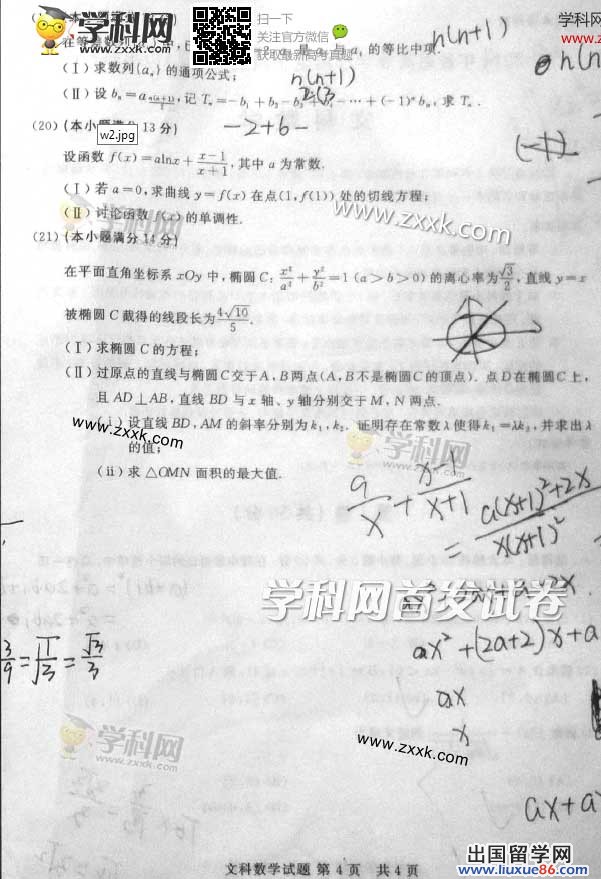 学科网
www.zxxk.com
扫一下
关注官方微信
获取最新高考真题
学科网
www.zx
n(n+1)
的等比中项.
(Ⅰ)求数列{aₙ}的通项公式;
n(n+1)
(Ⅱ)设 bₙ=a_{n(n+1)/2},记 Tₙ=-b₁+b₂-b₃+b₄-…+(-1)ⁿbₙ,求 Tₙ.
-2+6-
(20)(本小题满分 13 分)
w2.jpg
设函数 f(x)=alnx+(x-1)/(x+1),其中 a 为常数.
(Ⅰ)若 a=0,求曲线 y=f(x)在点(1,f(1))处的切线方程;
(Ⅱ)讨论函数 f(x)的单调性.
www.zxxk.com
学科网
(21)(本小题满分 14 分)
在平面直角坐标系 xOy 中,椭圆 C:x²/a²+y²/b²=1(a>b>0)的离心率为√3/2,直线 y=x
被椭圆 C 截得的线段长为4√10/5.
(Ⅰ)求椭圆 C 的方程;
(Ⅱ)过原点的直线与椭圆C交于A,B两点(A,B不是椭圆C的顶点).点D在椭圆C上,
且 AD⊥AB,直线 BD 与 x 轴、y 轴分别交于 M,N 两点.
(ⅰ)设直线 BD,AM 的斜率分别为 k₁,k₂.证明存在常数 λ 使得 k₁=λk₂,并求出 λ
的值;
www.zxxk.com
学科网
(ii)求 △OMN 面积的最大值.
a/x + (x-1)/(x+1)
= (a(x+1)²+2x)/(x(x+1)²)
学科网首发试卷
ax²+(2a+2)x+a
3/9=√1/√3=√3/3
ax
x
学科网
www.zxxk.com
www.zxxk.com
ax+a
文科数学试题 第 4 页 共 4 页
出国留学网
www.liuxue86.com